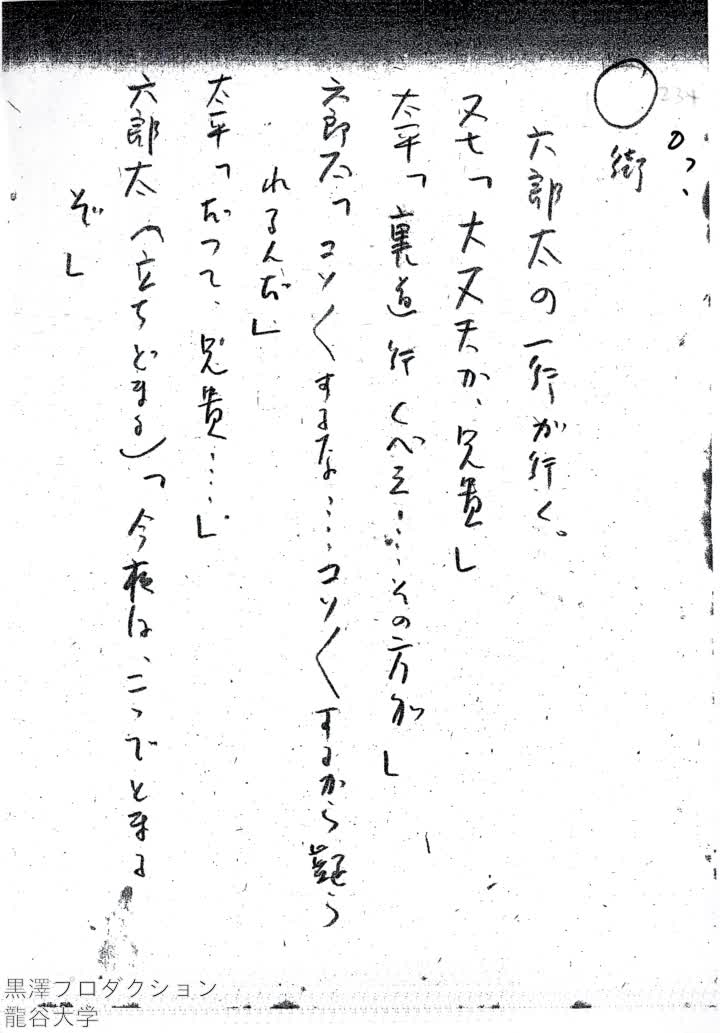 234
○
街
六郎太の一行が行く。
又七「大丈夫か、兄貴」
太平「裏道行くべえ……その方が」
六郎太「コソ〱するな……コソ〱するから
れるんだ」
太平「だって、兄貴……」
六郎太(立ちどまる)「今夜は、こゝでとまる
ぞ」
黒澤プロダクション
龍谷大学